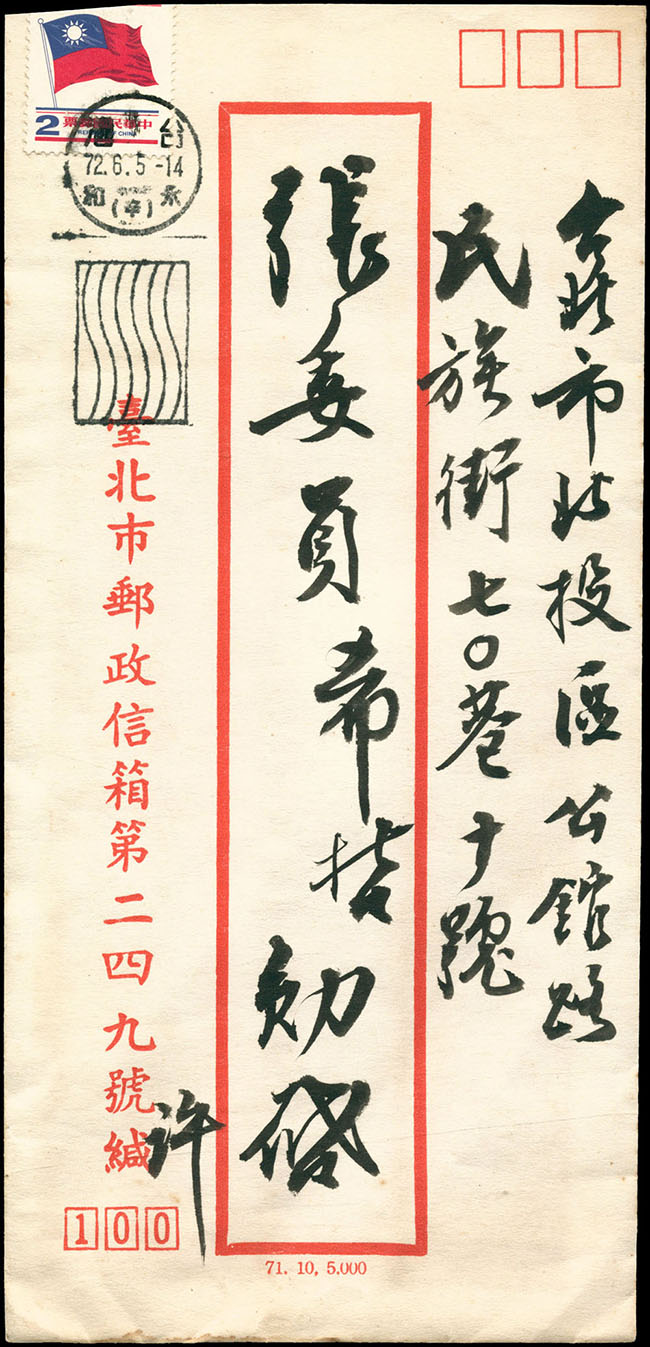 台北市北投區公館路
民族街七〇巷十號
張委員希哲勛啓
臺北市郵政信箱第二四九號緘
許
100
71. 10, 5.000
2
中華民國郵票
REPUBLIC OF CHINA
72.6.5-14
永和